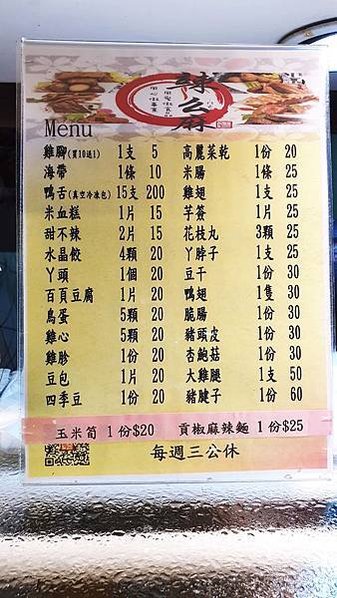 辣么麻
Menu
雞腳(買10送1) 1支 5
海帶 1條 10
鴨舌(真空冷凍包) 15支 200
米血糕 1片 15
甜不辣 2片 15
水晶餃 4顆 20
丫頭 1個 20
百頁豆腐 1片 20
鳥蛋 5顆 20
雞心 5顆 20
雞胗 1份 20
豆包 1片 20
四季豆 1份 20
高麗菜乾 1份 20
米腸 1條 25
雞翅 1支 25
芋簽 1片 25
花枝丸 3顆 25
丫脖子 1支 25
豆干 1份 30
鴨翅 1隻 30
脆腸 1份 30
豬頭皮 1份 30
杏鮑菇 1份 30
大雞腿 1支 50
豬腱子 1份 60
玉米筍 1份$20 貢椒麻辣麵 1份$25
每週三公休